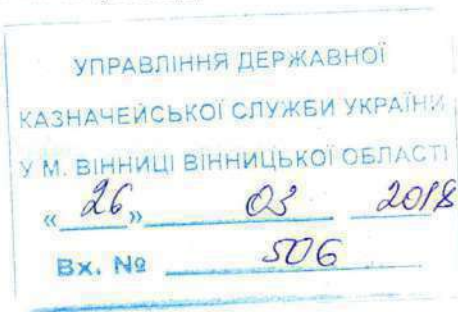 УПРАВЛІННЯ ДЕРЖАВНОЇ
КАЗНАЧЕЙСЬКОЇ СЛУЖБИ УКРАЇНИ
У М. ВІННИЦІ ВІННИЦЬКОЇ ОБЛАСТІ
«26» 03 2018
Вх. № 506